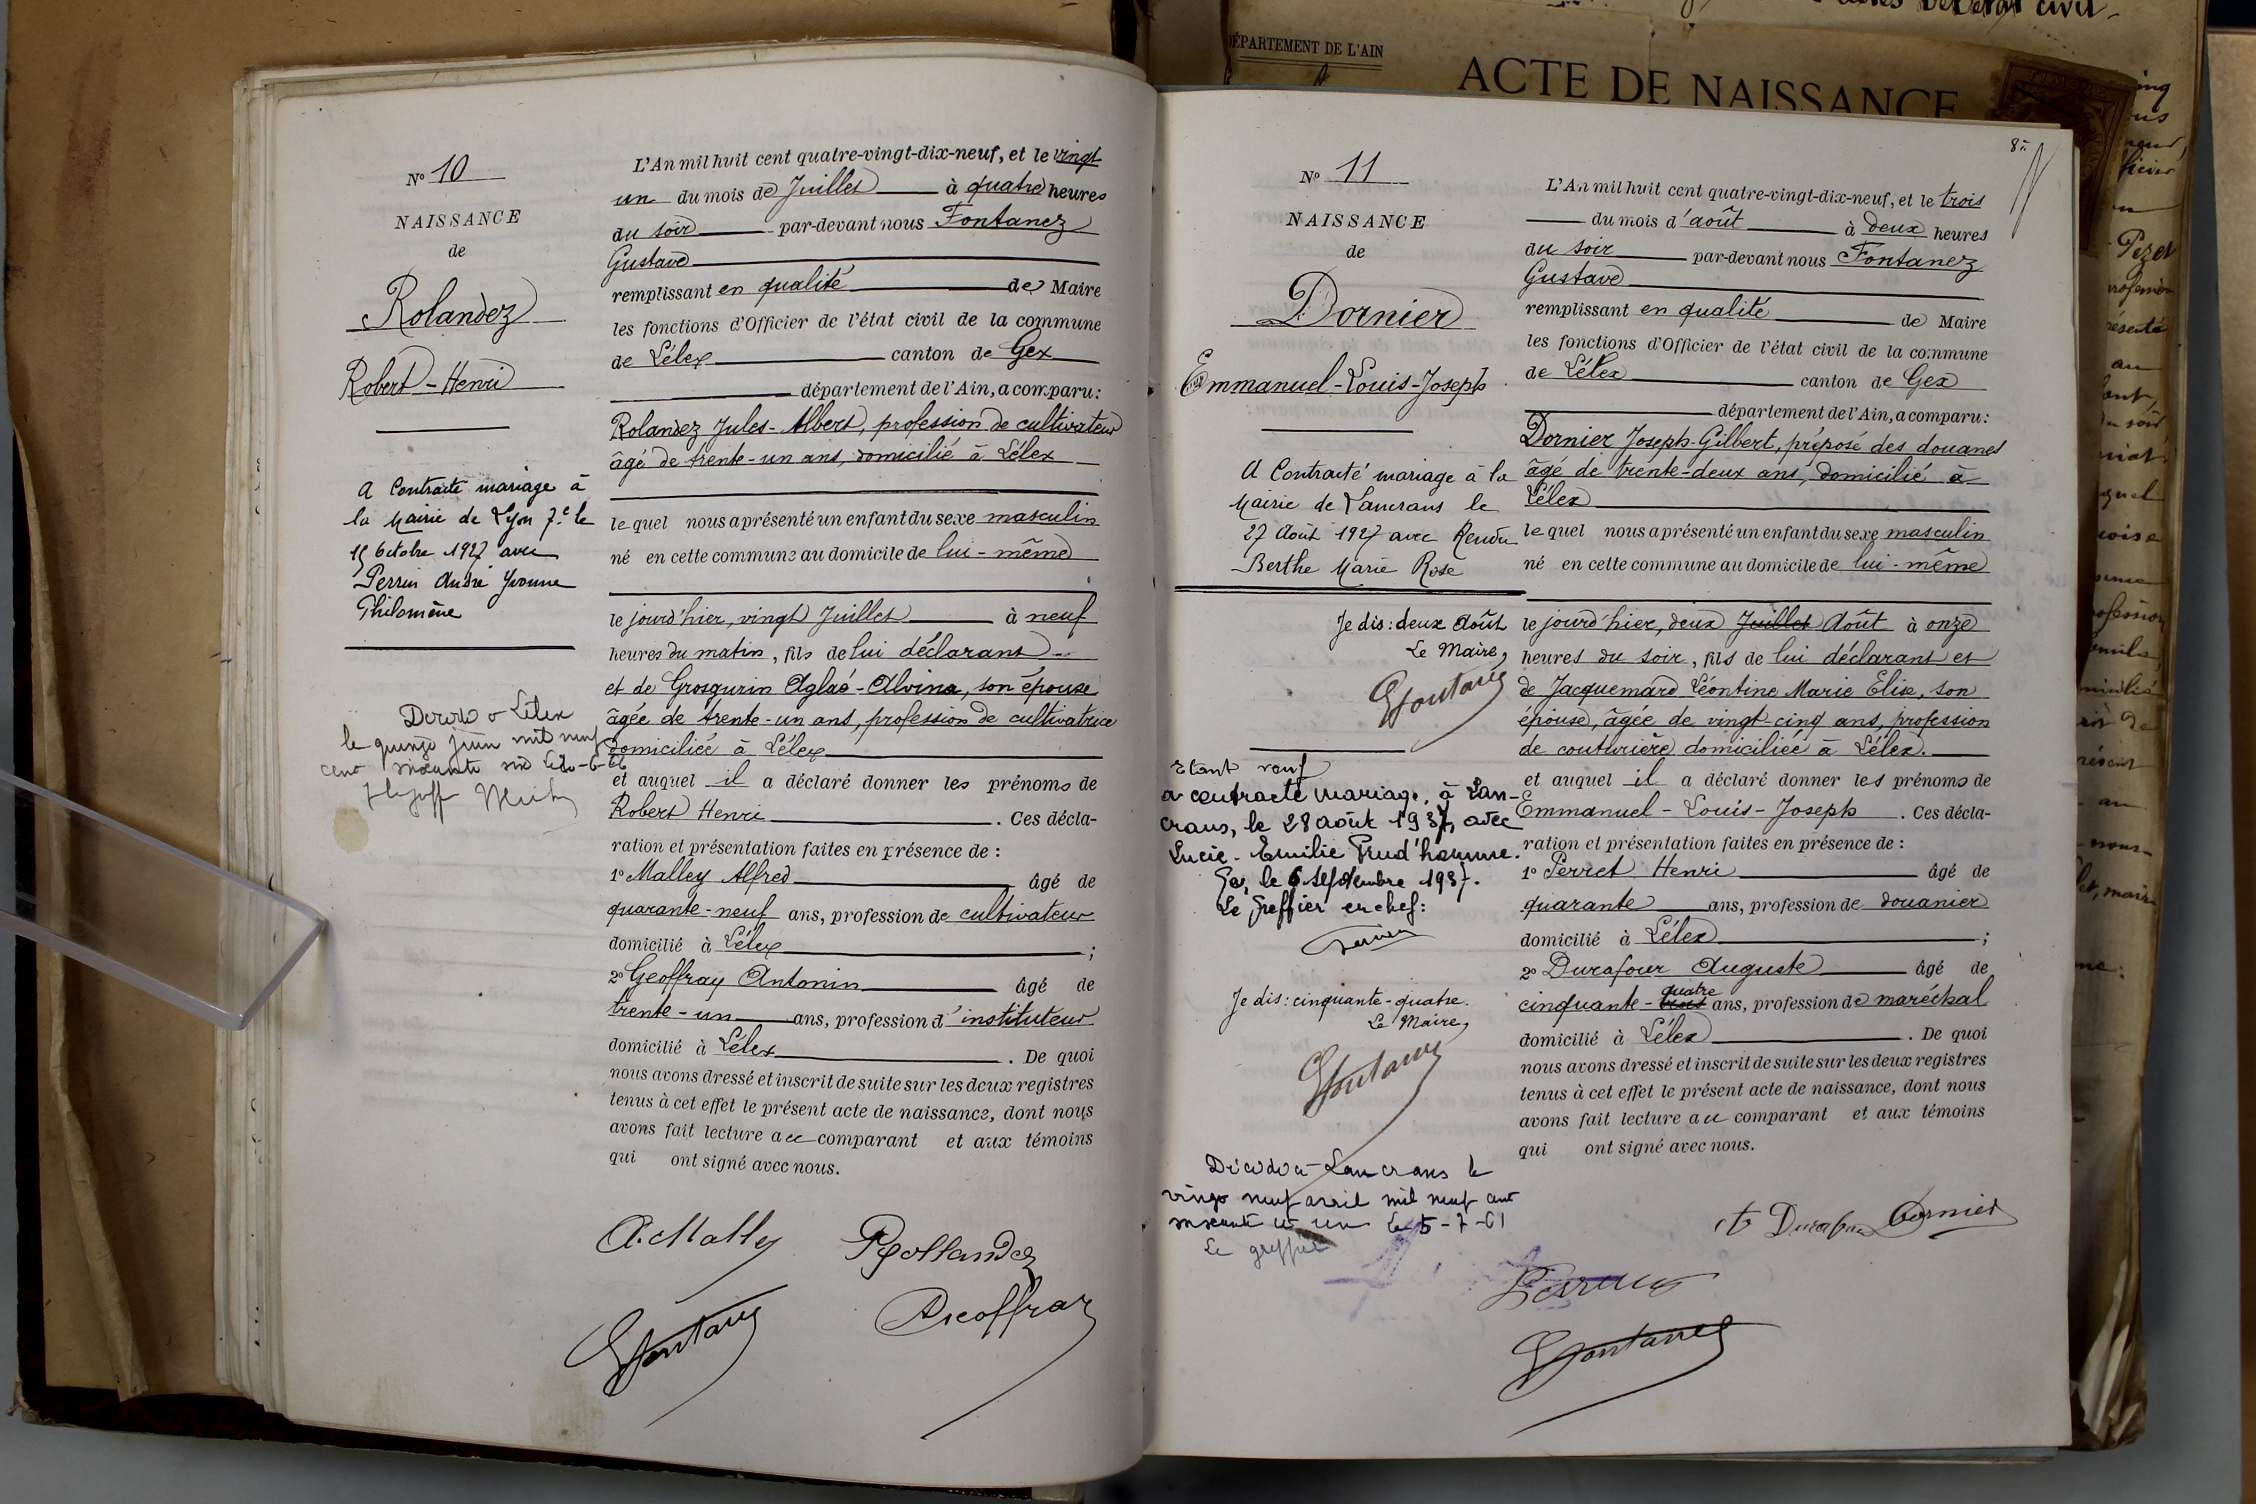 N° 10
NAISSANCE
de
Rolandez
Robert-Henri
a Contracté mariage à
la Mairie de Lyon 7e le
15 Octobre 1927 avec
Perrin André Yvonne
Philomène
Lélex
le quinze juin mil neuf
cent soixante six
L'An mil huit cent quatre-vingt-dix-neuf, et le vingt
un du mois de Juillet à quatre heures
du soir par-devant nous Fontanez
Gustave
remplissant en qualité de Maire
les fonctions d'Officier de l'état civil de la commune
de Lélex canton de Gex
département de l'Ain, a comparu:
Rolandez Jules-Albert, profession de cultivateur
âgé de trente-un ans, domicilié à Lélex
le quel nous a présenté un enfant du sexe masculin
né en cette commune au domicile de lui-même
le jourd'hier, vingt Juillet à neuf
heures du matin, fils de lui déclarant
et de Grosgurin Aglaé-Alvina, son épouse
âgée de trente-un ans, profession de cultivatrice
domiciliée à Lélex
et auquel il a déclaré donner les prénoms de
Robert Henri . Ces décla-
ration et présentation faites en présence de :
1° Malley Alfred âgé de
quarante-neuf ans, profession de cultivateur
domicilié à Lélex ;
2° Geoffray Antonin âgé de
trente-un ans, profession d'instituteur
domicilié à Lélex . De quoi
nous avons dressé et inscrit de suite sur les deux registres
tenus à cet effet le présent acte de naissance, dont nous
avons fait lecture au comparant et aux témoins
qui ont signé avec nous.
A. Malley Rollandez
GFontanez AGeoffray
DÉPARTEMENT DE L'AIN
ACTE DE NAISSANCE
N° 11
NAISSANCE
de
Dornier
Emmanuel-Louis-Joseph
a Contracté mariage à la
Mairie de Lancrans le
27 Août 1927 avec Rendu
Berthe Marie Rose
Je dis: deux Août
Le Maire,
GFontanez
Etant veuf
a contracté mariage, à Lan-
crans, le 28 août 1937, avec
Lucie-Emilie Prud'homme.
Gex, le 6 septembre 1937.
Le Greffier en chef:
Je dis: cinquante-quatre.
Le Maire,
GFontanez
Décédé à Lancrans le
vingt neuf avril mil neuf cent
soixante et un Le 5-7-61
Le greffier
L'An mil huit cent quatre-vingt-dix-neuf, et le trois
du mois d'août à deux heures
du soir par-devant nous Fontanez
Gustave
remplissant en qualité de Maire
les fonctions d'Officier de l'état civil de la commune
de Lélex canton de Gex
département de l'Ain, a comparu:
Dornier Joseph-Gilbert, préposé des douanes
âgé de trente-deux ans, domicilié à
Lélex
le quel nous a présenté un enfant du sexe masculin
né en cette commune au domicile de lui-même
le jourd'hier, deux Juillet Août à onze
heures du soir, fils de lui déclarant et
de Jacquemard Léontine Marie Elise, son
épouse, âgée de vingt-cinq ans, profession
de couturière domiciliée à Lélex.
et auquel il a déclaré donner les prénoms de
Emmanuel-Louis-Joseph . Ces décla-
ration et présentation faites en présence de :
1° Perret Henri âgé de
quarante ans, profession de douanier
domicilié à Lélex ;
2° Durafour Auguste âgé de
quatre
cinquante-trois ans, profession de maréchal
domicilié à Lélex . De quoi
nous avons dressé et inscrit de suite sur les deux registres
tenus à cet effet le présent acte de naissance, dont nous
avons fait lecture au comparant et aux témoins
qui ont signé avec nous.
Durafour Dornier
GFontanez